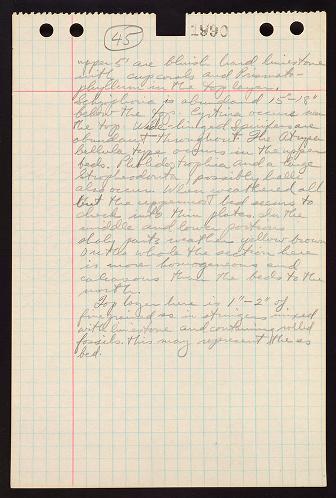 45
1990
upper 5' are bluish hard limestone
with cup corals and Prismato-
phyllum in the top layer.
Schizophoria is abundant 15"-18"
below the top. Cyrtina occurs near
the top. Wide-hinged Spirifers are
abundant throughout. The Atrypa
bellula type occurs in the upper
beds. Pholidostrophia and a large
Stropheodonta possibly halli
also occur. When weathered all
but the uppermost bed seems to
check into thin plates. In the
middle and lower portions
shaly parts weather yellow brown
On the whole the section here
is more homogeneous and
calcareous than the beds to the
north.
Top layer here is 1"-2" of
fine grained ss in stringers mixed
with limestone and containing rolled
fossils. This may represent the ss
bed.